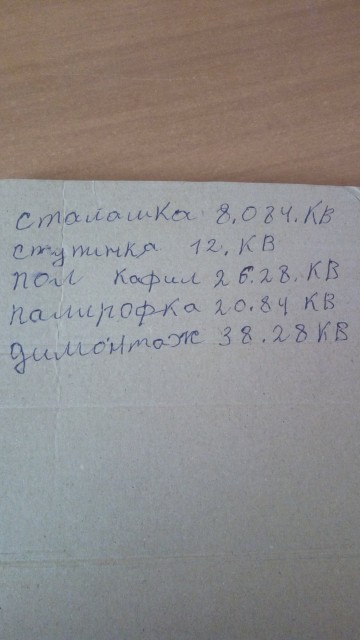 сталашка 8.084.КВ
ступинка 12.КВ
пол кафил 26.28.КВ
палировка 20.84 КВ
димонтаж 38.28КВ